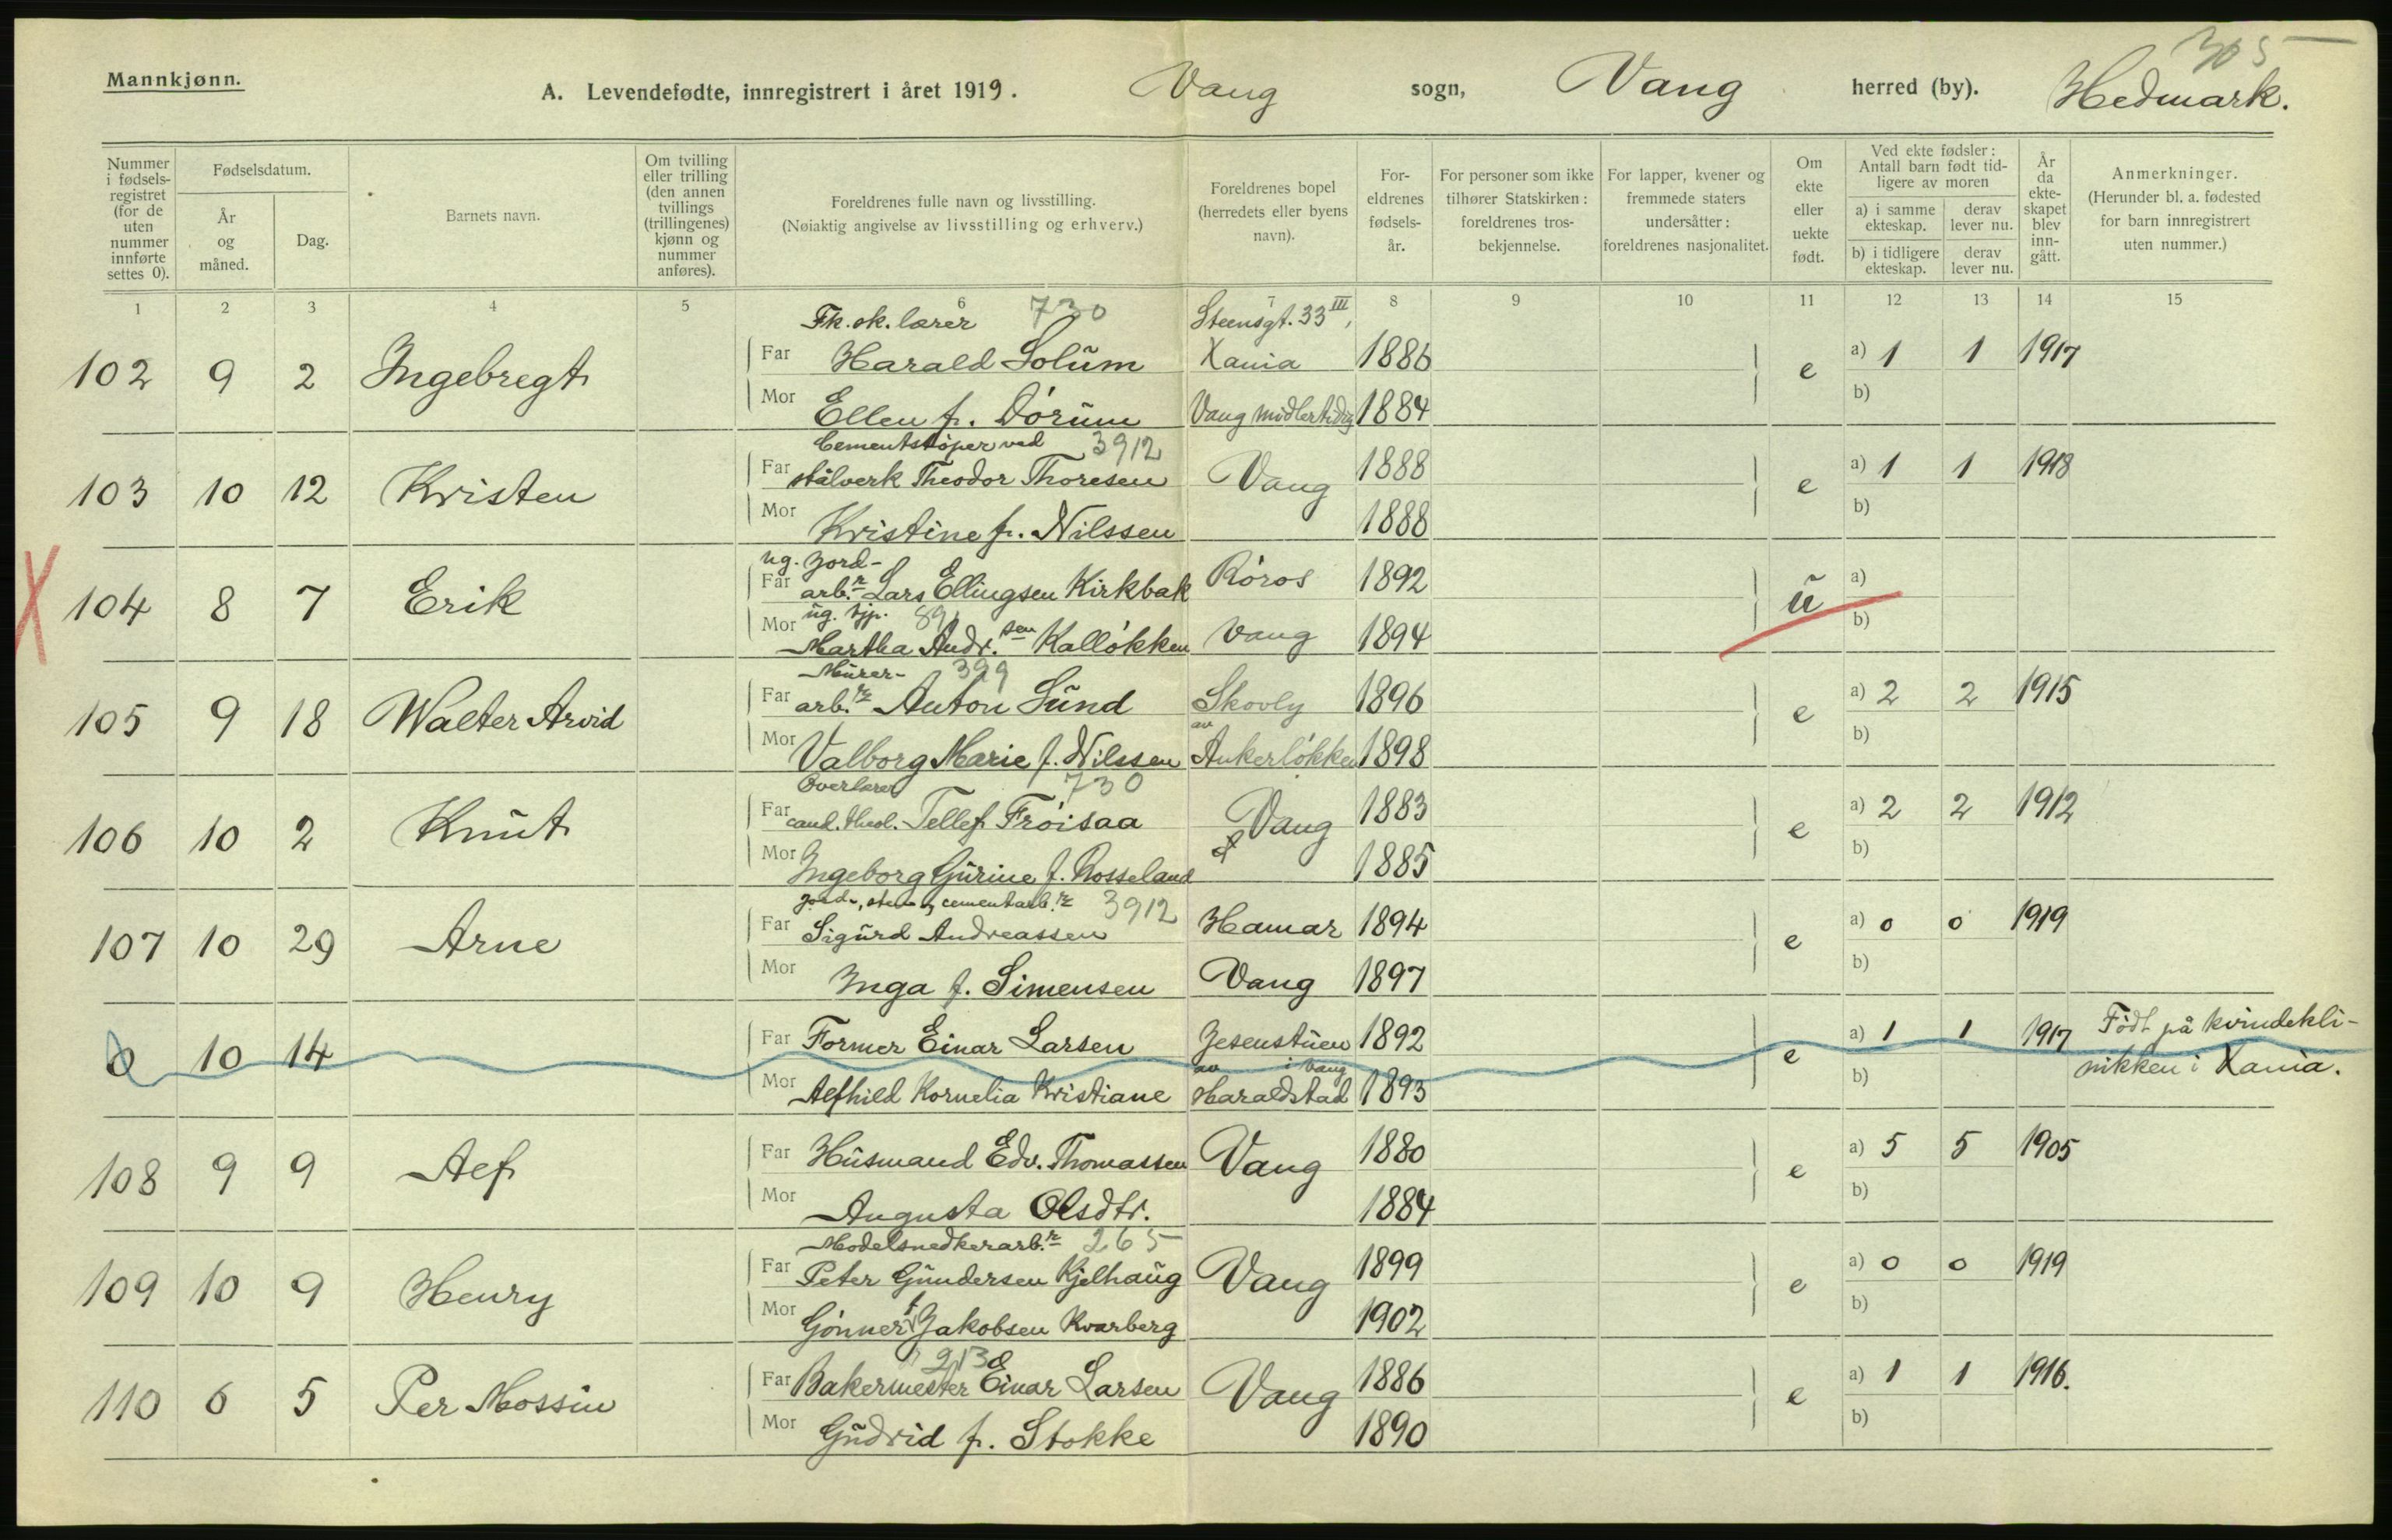 305
Mannkjønn.
A. Levendefødte, innregistrert i året 1919. Vang sogn, Vang herred (by). Hedmark.
Nummer i fødsels-registret (for de uten nummer innførte settes 0).
Fødselsdatum.
År og måned.
Dag.
Barnets navn.
Om tvilling eller trilling (den annen tvillings (trillingenes) kjønn og nummer anføres).
Foreldrenes fulle navn og livsstilling.
(Nøiaktig angivelse av livsstilling og erhverv.)
Foreldrenes bopel (herredets eller byens navn).
For-eldrenes fødsels-år.
For personer som ikke tilhører Statskirken: foreldrenes tros-bekjennelse.
For lapper, kvener og fremmede staters undersåtter: foreldrenes nasjonalitet.
Om ekte eller uekte født.
Ved ekte fødsler: Antall barn født tid-ligere av moren
a) i samme ekteskap. derav lever nu.
b) i tidligere ekteskap. derav lever nu.
År da ekte-skapet blev inn-gått.
Anmerkninger.
(Herunder bl. a. fødested for barn innregistrert uten nummer.)
1 2 3 4 5 6 7 8 9 10 11 12 13 14 15
Fk.sk. lærer 730 Steensgt. 33 III,
102 9 2 Ingebregt Far Harald Solum Xania 1886 e a) 1 1 1917
Mor Ellen f. Dørum Vang midlertidig 1884 b)
Cementstøper ved 3912
103 10 12 Kristen Far stålverk Theodor Thoresen Vang 1888 e a) 1 1 1918
Mor Kristine f. Nilssen 1888 b)
ug. Jord-
X 104 8 7 Erik Far arb.r Lars Ellingsen Kirkbak Røros 1892 u a)
ug. tjp. 891
Mor Martha Andr.sen Kalløkken Vang 1894 b)
Murer- 399
105 9 18 Walter Arvid Far arb.r Anton Lund Skovly 1896 e a) 2 2 1915
Mor Valborg Marie f. Nilssen av Ankerløkken 1898 b)
Overlærer 730
106 10 2 Knut Far cand. theol. Tellef Frøisaa Vang 1883 e a) 2 2 1912
Mor Ingeborg Gurine f. Rosseland 1885 b)
Jord-, sten- og cementarb.r 3912
107 10 29 Arne Far Sigurd Andreassen Hamar 1894 e a) 0 0 1919
Mor Inga f. Simensen Vang 1897 b)
0 10 14 Far Former Einar Larsen Jesenstuen 1892 e a) 1 1 1917 Født på kvindekli-
i Vang
Mor Alfhild Kornelia Kristiane av Haraldstad 1893 b) nikken i Xania.
108 9 9 Alf Far Husmand Edv. Thomassen Vang 1880 e a) 5 5 1905
Mor Augusta Olsdtr. 1884 b)
Modelsnedkerarb.r 265
109 10 9 Henry Far Peter Gundersen Kjelhaug Vang 1899 e a) 0 0 1919
Mor Gønner f. Jakobsen Kvarberg 1902 b)
213
110 6 5 Per Mossin Far Bakermester Einar Larsen Vang 1886 e a) 1 1 1916.
Mor Gudrid f. Stokke 1890 b)